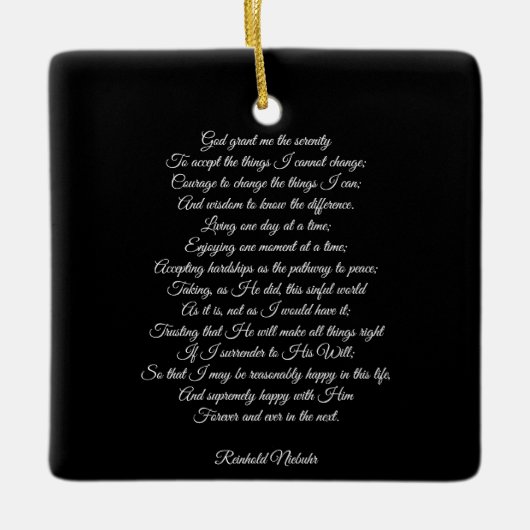 God grant me the serenity
To accept the things I cannot change;
Courage to change the things I can;
And wisdom to know the difference.
Living one day at a time;
Enjoying one moment at a time;
Accepting hardships as the pathway to peace;
Taking, as He did, this sinful world
As it is, not as I would have it;
Trusting that He will make all things right
If I surrender to His Will;
So that I may be reasonably happy in this life,
And supremely happy with Him
Forever and ever in the next.
Reinhold Niebuhr